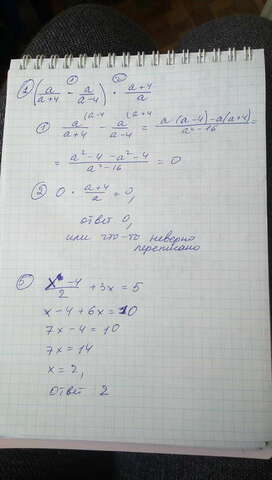 ① (a/(a+4) - a/(a-4)) · (a+4)/a
① a/(a+4) - a/(a-4) = (a·(a-4)-a(a+4))/(a²-16) =
= (a²-4-a²-4)/(a²-16) = 0
② 0 · (a+4)/a = 0,
ответ 0,
или что-то неверно
переписано
⑤ (x-4)/2 + 3x = 5
x - 4 + 6x = 10
7x - 4 = 10
7x = 14
x = 2,
ответ 2